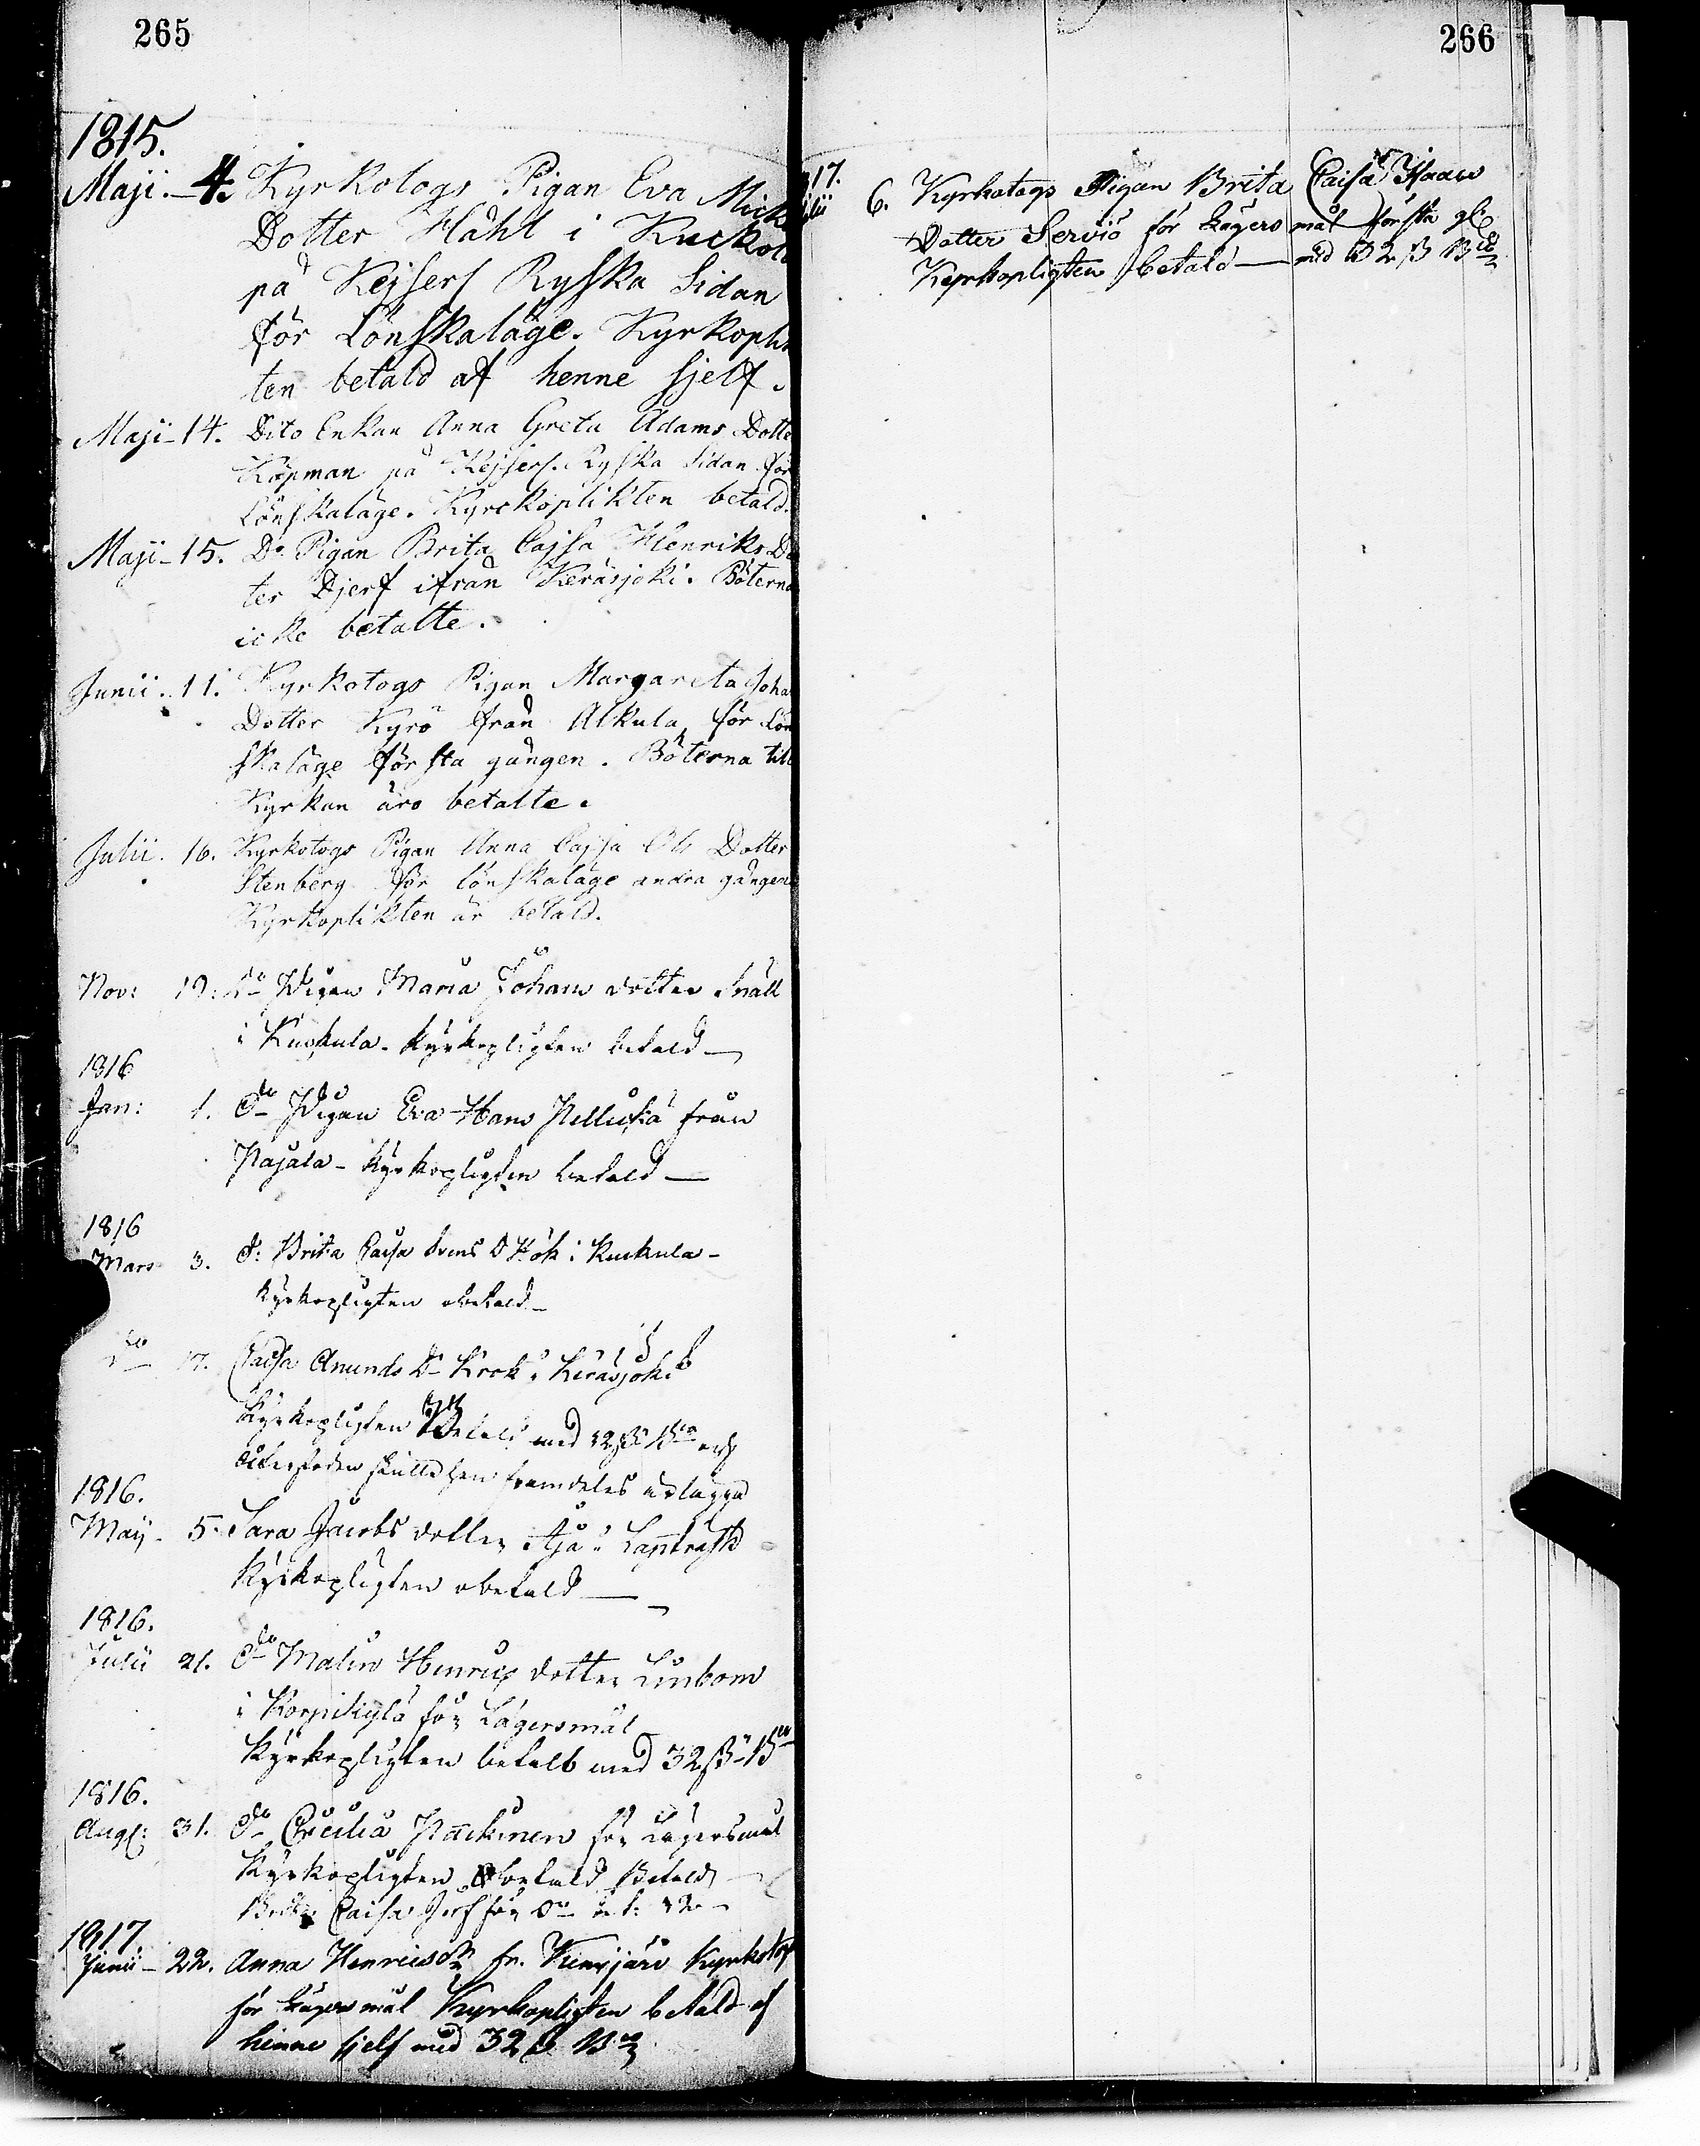 265
1815.
Maji. 4. Kyrkotogs Pigan Eva Mick
Dotter Hahl i Kuckol
på Kejserl Ryska Sidan
för Lönskaläge. Kyrkopli
ten betald af henne sjelf.
Maji 14. Dito Enkan Anna Greta Adams Dotte
Köpman på Kejserl. Ryska Sidan för
Lönskaläge. Kyrckoplikten betald.
Maji 15. Do Pigan Brita Cajsa Henriks Do
ter Djerf ifrån Keräsjoki. Böterna
icke betalte.
Junii. 11. Kyrkotogs Pigan Margareta Joha
Dotter Kyrö från Alkula för Lön
skaläge första gången. Böterna till
Kyrkan äro betalte.
Julii. 16. Kyrkotogs Pigan Anna Cajsa Ols Dotter
Stenberg för lönskaläge andra gången
Kyrkoplikten är betald.
Nov: 19. Do Pigan Maria Johans dotter Snäll
i Kuckula. Kyrkopligten betald
1816
Jan: 1. Do Pigan Eva Hans från
Pajala - Kyrkopligten betald
1816
Mars 3. D: Brita Caisa Svens D Hök i Kuckula -
Kyrkopligten obetald
Do 17. Caisa Anunds Dr Krok i Keräsjoki
Kyrkopligten betald med 32 ß Bco och
skulle hon framdeles erlägga
1816.
Maij 5. Sara Jacobs dotter Äjä i Lappträsk
Kyrkopligten obetald
1816.
Julii 21. Do Malin Henrics dotter Linbom
i Korpikylä för Lägersmål
Kyrkopligten betalt med 32 ß Bco
1816.
Aug: 31. Do Cecilia Päckinen för Lägersmål
Kyrkopligten obetald Betald
Brita Caisa för Do
1817.
Junii 22. Anna Henricsdr fr. Kemijärv Kyrkotogs
för Lägersmål Kyrkopligten betald af
henne sjelf med 32 ß Bco
266
17.
6. Kyrkotogs Pigan Brita Caisa Hans
Dotter Serviö för Lägersmål första gl
Kyrkopligten betald med 32 ß Bco